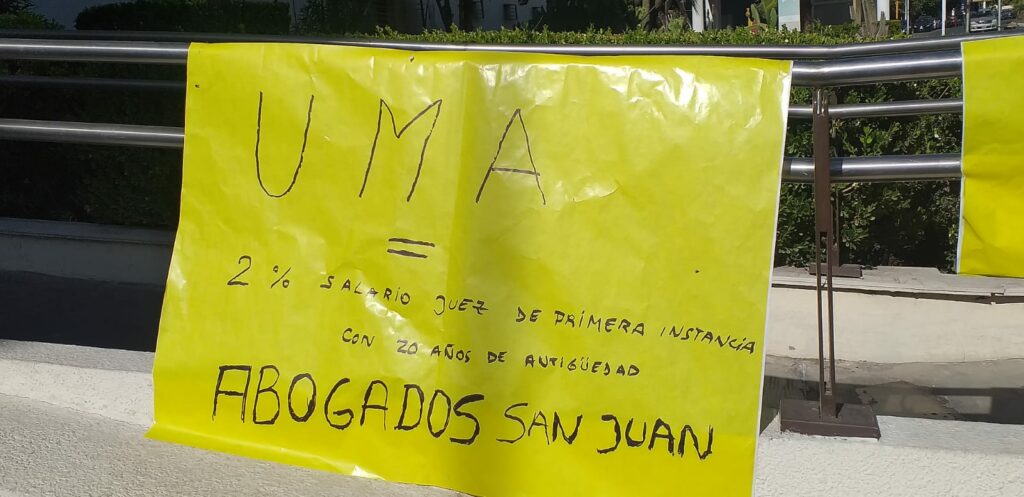 UMA
=
2% SALARIO JUEZ DE PRIMERA INSTANCIA
CON 20 AÑOS DE ANTIGÜEDAD
ABOGADOS SAN JUAN